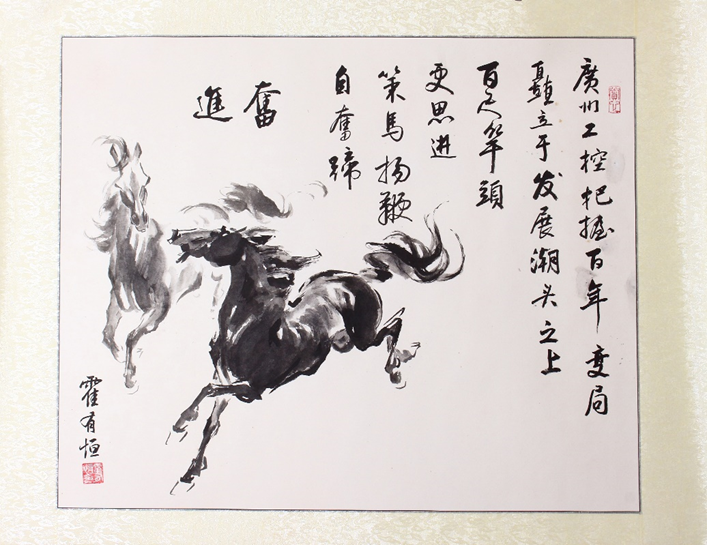 廣州工控把握百年变局
矗立于发展潮头之上
百尺竿頭
更思进
策馬扬鞭
自奮蹄
奮
進
霍有恒